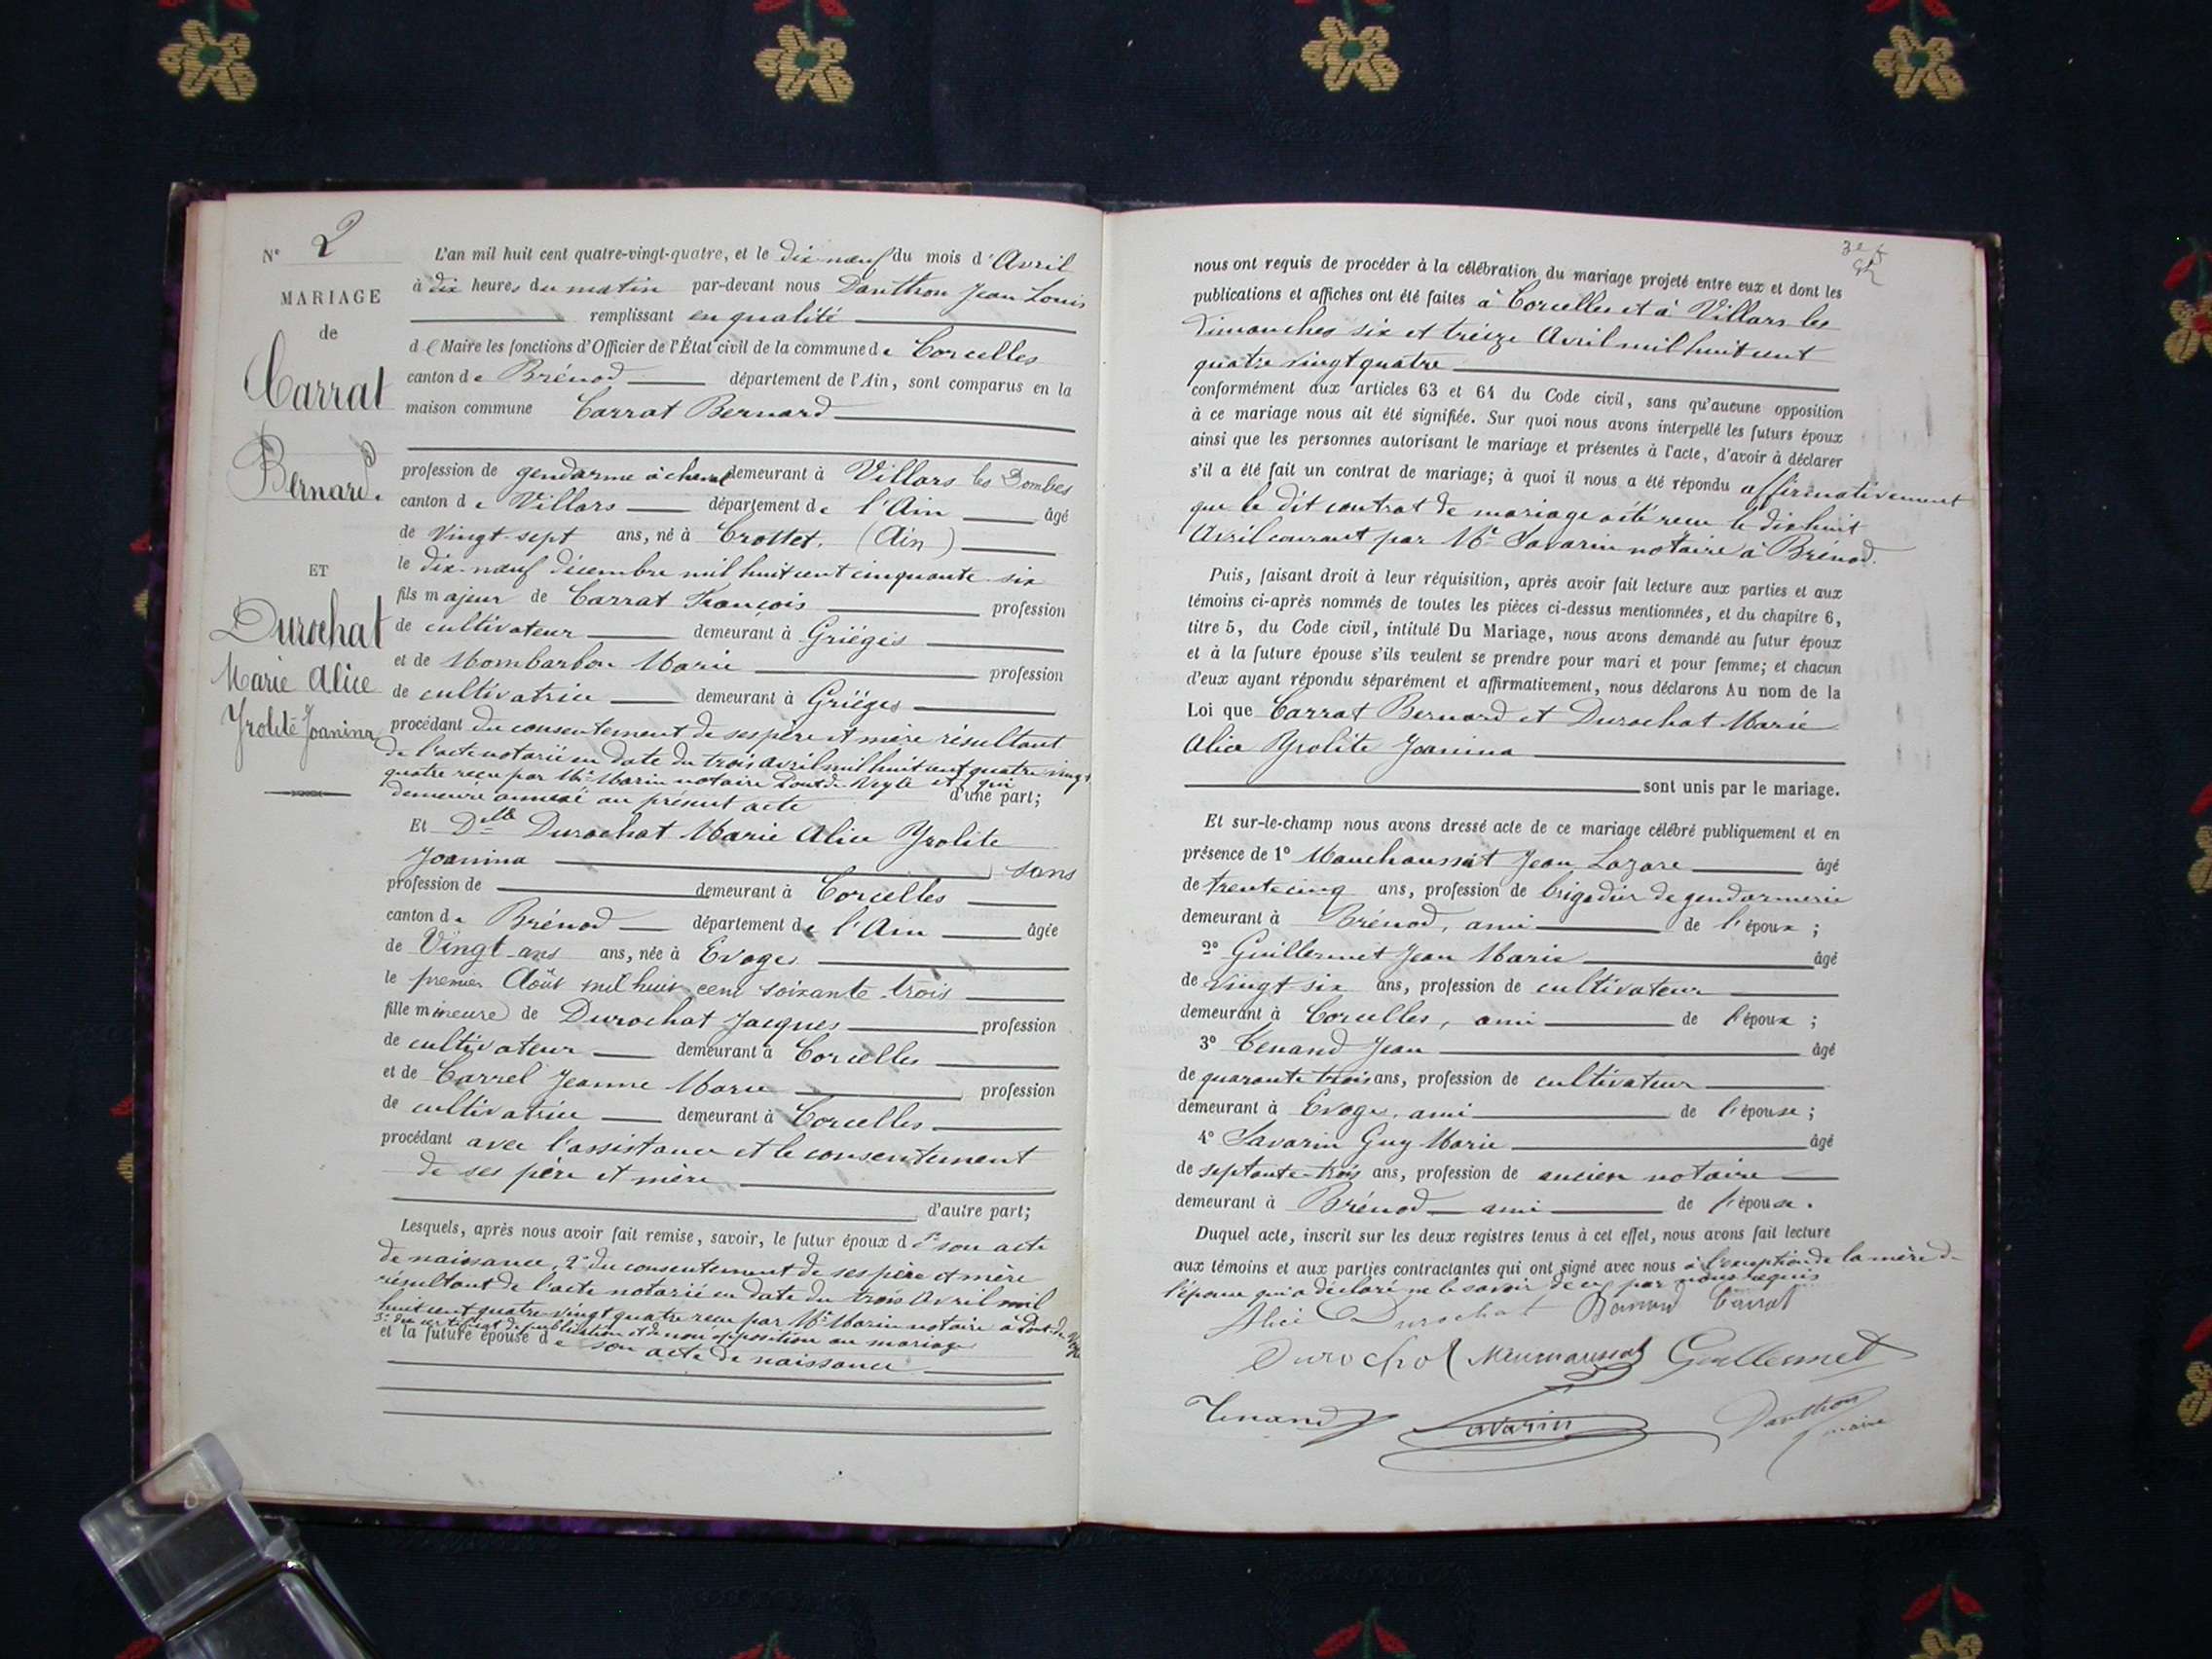 N° 2
MARIAGE
de
Carrat
Bernard.
ET
Durochat
Marie Alice
Yrolite Joanina
L'an mil huit cent quatre-vingt-quatre, et le dix-neuf du mois d'Avril
à dix heures du matin par-devant nous Danthon Jean Louis
remplissant en qualité
de Maire les fonctions d'Officier de l'État civil de la commune de Corcelles
canton de Brénod département de l'Ain, sont comparus en la
maison commune Carrat Bernard
profession de gendarme à cheval demeurant à Villars les Dombes
canton de Villars département de l'Ain âgé
de Vingt-sept ans, né à Crottet. (Ain)
le dix-neuf décembre mil huit cent cinquante-six
fils majeur de Carrat François profession
de cultivateur demeurant à Griéges
et de Mombarbon Marie profession
de cultivatrice demeurant à Griéges
procédant du consentement de ses père et mère résultant
de l'acte notarié en date du trois avril mil huit cent quatre vingt
quatre recu par Me Marin notaire Pont de Veyle et qui
demeure annexé au présent acte d'une part;
Et Dlle Durochat Marie Alice Yrolite
Joanina sans
profession de demeurant à Corcelles
canton de Brénod département de l'Ain âgée
de Vingt ans ans, née à Evoges
le premier Août mil huit cent soixante-trois
fille mineure de Durochat Jacques profession
de cultivateur demeurant à Corcelles
et de Carrel Jeanne Marie profession
de cultivatrice demeurant à Corcelles
procédant avec l'assistance et le consentement
de ses père et mère
d'autre part;
Lesquels, après nous avoir fait remise, savoir, le futur époux d 1° son acte
de naissance, 2° du consentement de ses père et mère
résultant de l'acte notarié en date du trois Avril mil
huit cent quatre-vingt quatre recu par Me Marin notaire à Pont de Veyle
3° du certificat de publication et de non opposition au mariage
et la future épouse de son acte de naissance
nous ont requis de procéder à la célébration du mariage projeté entre eux et dont les
publications et affiches ont été faites à Corcelles et à Villars les
dimanches six et treize Avril mil huit cent
quatre vingt quatre
conformément aux articles 63 et 64 du Code civil, sans qu'aucune opposition
à ce mariage nous ait été signifiée. Sur quoi nous avons interpellé les futurs époux
ainsi que les personnes autorisant le mariage et présentes à l'acte, d'avoir à déclarer
s'il a été fait un contrat de mariage; à quoi il nous a été répondu affirmativement
que le dit contrat de mariage a été recu le dix huit
Avril courant par Me Savarin notaire à Brénod.
Puis, faisant droit à leur réquisition, après avoir fait lecture aux parties et aux
témoins ci-après nommés de toutes les pièces ci-dessus mentionnées, et du chapitre 6,
titre 5, du Code civil, intitulé Du Mariage, nous avons demandé au futur époux
et à la future épouse s'ils veulent se prendre pour mari et pour femme; et chacun
d'eux ayant répondu séparément et affirmativement, nous déclarons Au nom de la
Loi que Carrat Bernard et Durochat Marie
Alice Yrolite Joanina
sont unis par le mariage.
Et sur-le-champ nous avons dressé acte de ce mariage célébré publiquement et en
présence de 1° Manchaussat Jean Lazare âgé
de trente cinq ans, profession de brigadier de gendarmerie
demeurant à Brénod, ami de l'époux ;
2° Guillermet Jean Marie âgé
de Vingt six ans, profession de cultivateur
demeurant à Corcelles, ami de l'époux ;
3° Tenand Jean âgé
de quarante trois ans, profession de cultivateur
demeurant à Evoges, ami de l'épouse ;
4° Savarin Guy Marie âgé
de septante-trois ans, profession de ancien notaire
demeurant à Brénod ami de l'épouse.
Duquel acte, inscrit sur les deux registres tenus à cet effet, nous avons fait lecture
aux témoins et aux parties contractantes qui ont signé avec nous à l'exception de la mère de
l'épouse qui a déclaré ne le savoir de ce par nous requis
Alice Durochat Bernard Carrat
Durochat Guillermet
Tenand Savarin Danthon
maire